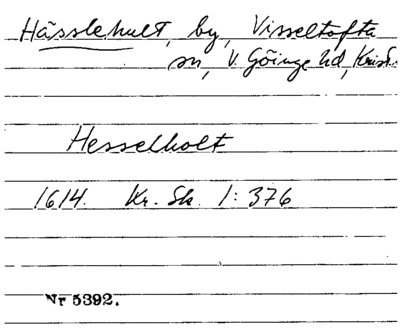 Hässlehult, by, Visseltofta
sn, V. Göinge hd, Krist.
Hesselholt
1614. Kr. Sk. 1:376
Nr 5392.